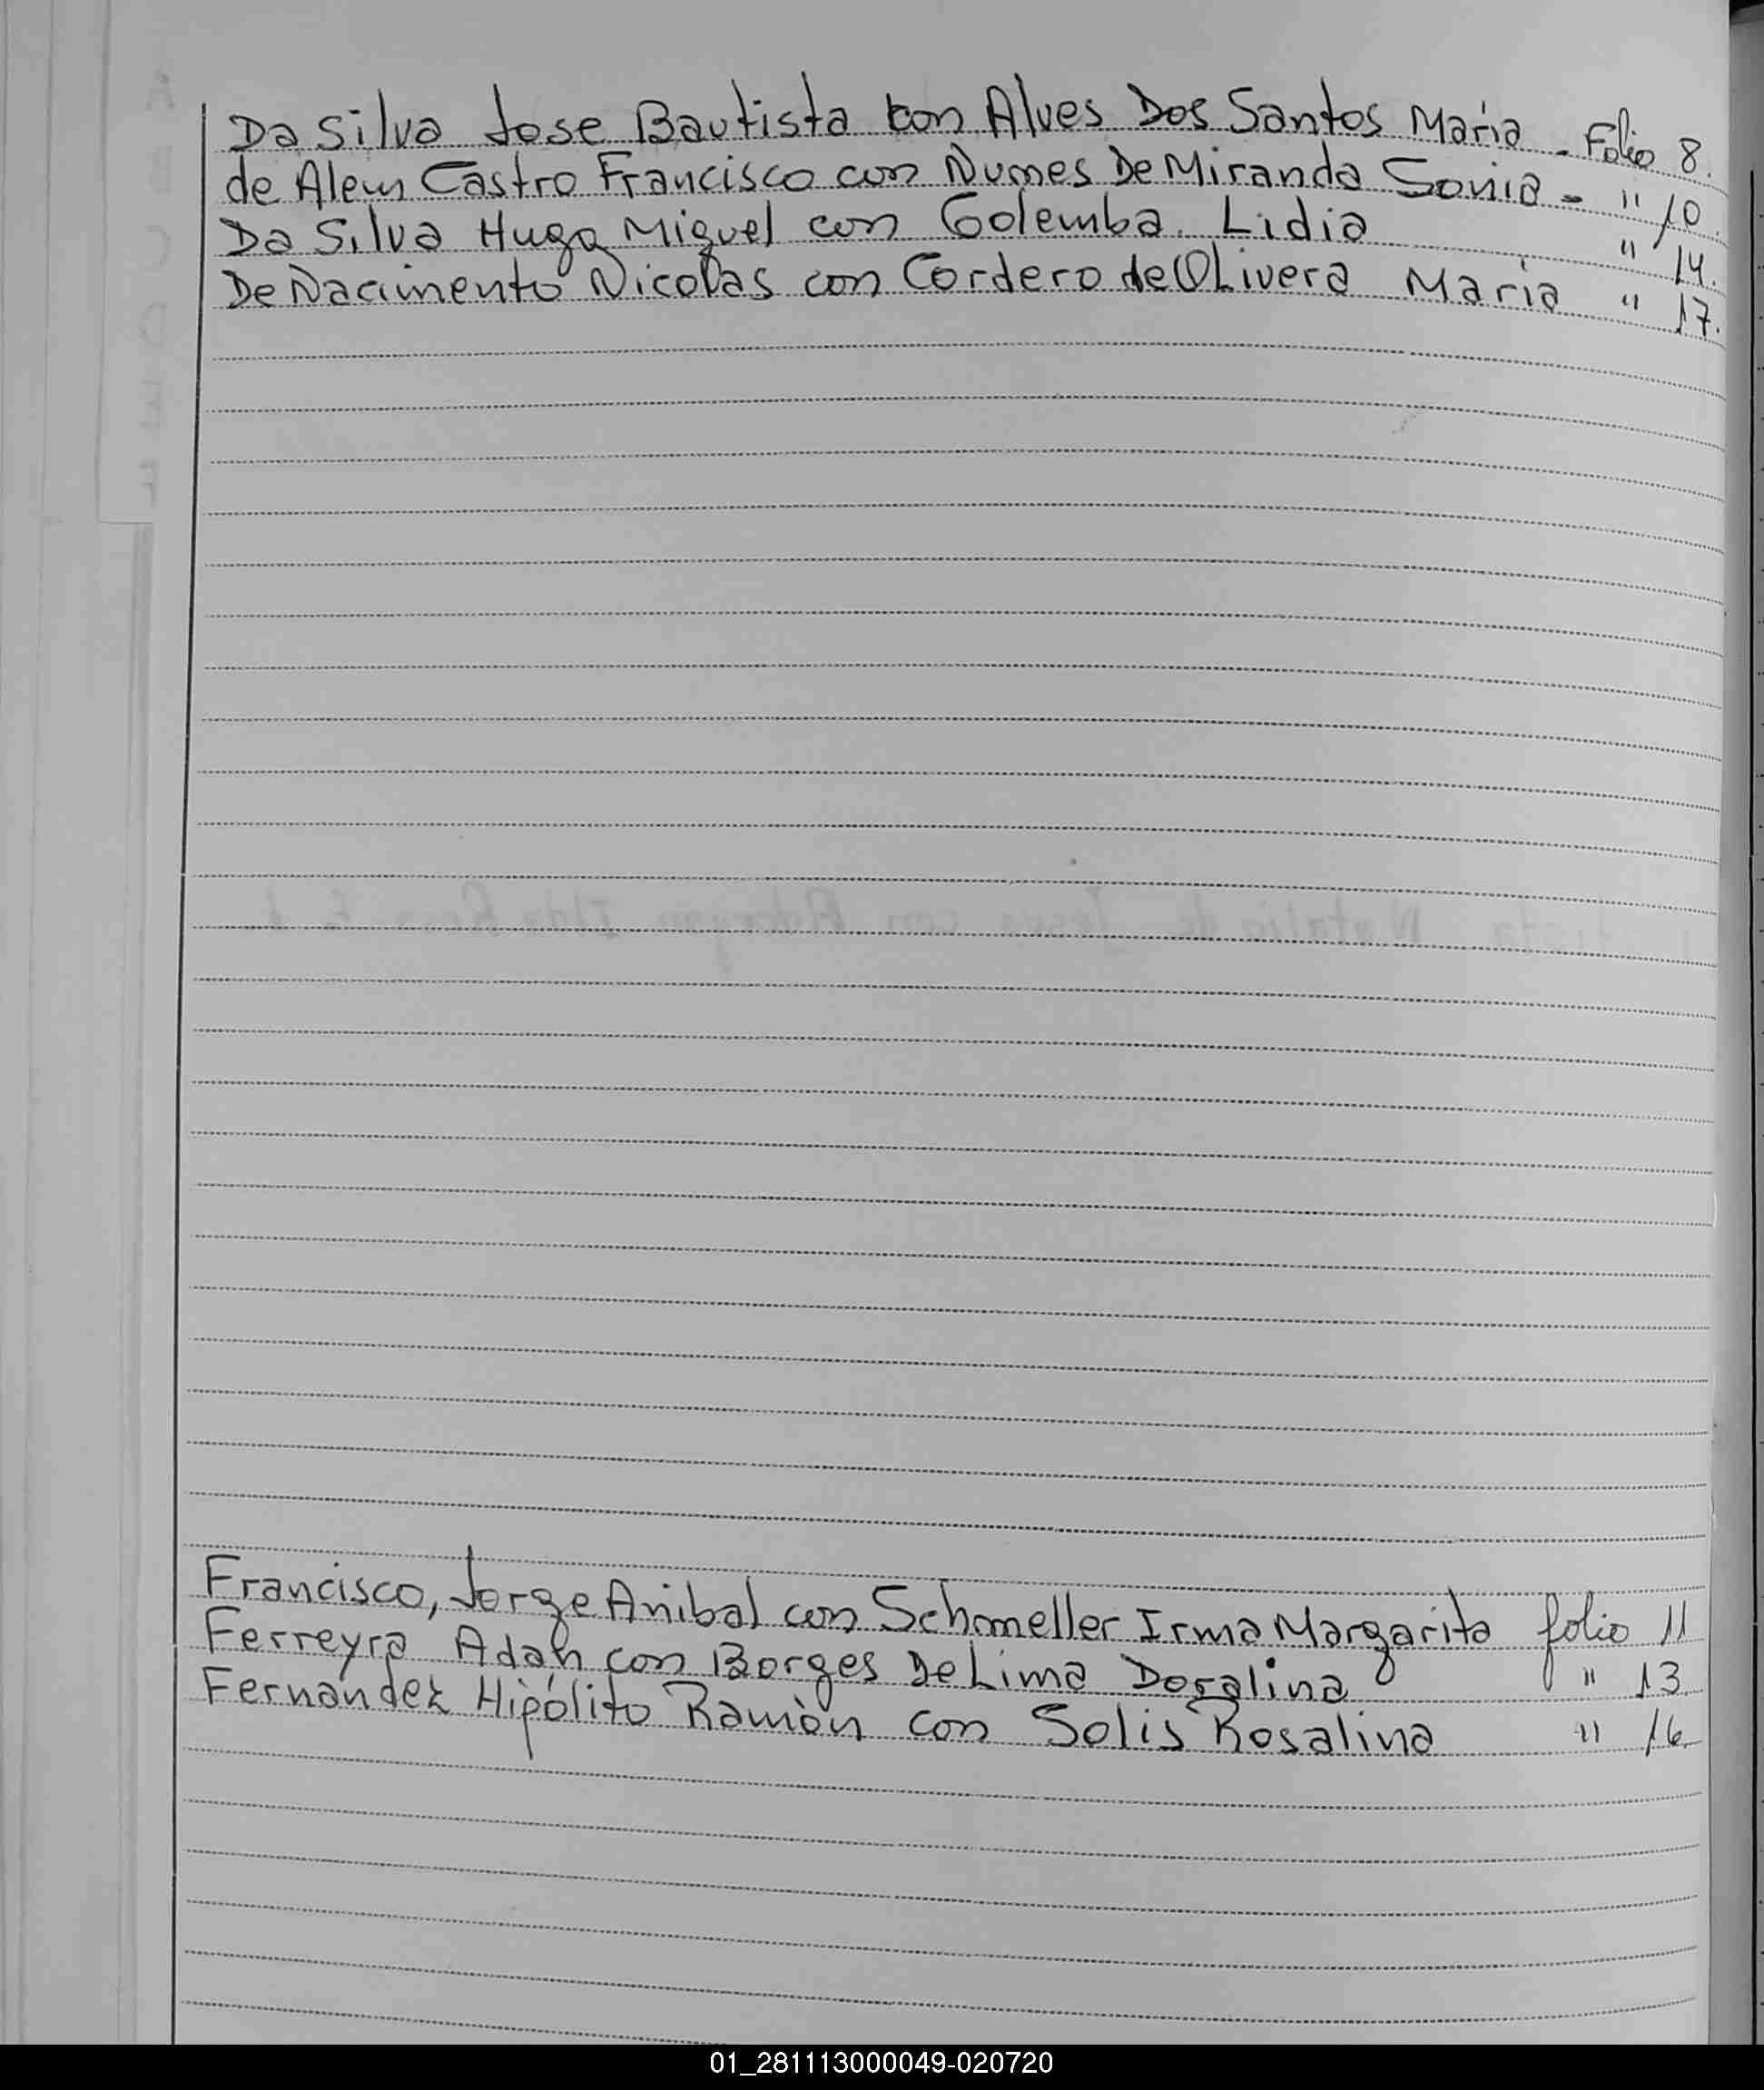 Da Silva Jose Bautista con Alves Dos Santos Maria - Folio 8.
de Alem Castro Francisco con Nunes De Miranda Sonia - " 10.
Da Silva Hugo Miguel con Golemba Lidia " 14.
De Nacimento Nicolas con Cordero de Olivera Maria " 17.
Francisco, Jorge Anibal con Schmeller Irma Margarita folio 11
Ferreyra Adán con Borges De Lima Doralina " 13
Fernández Hipólito Ramón con Solis Rosalina " 16
01_281113000049-020720